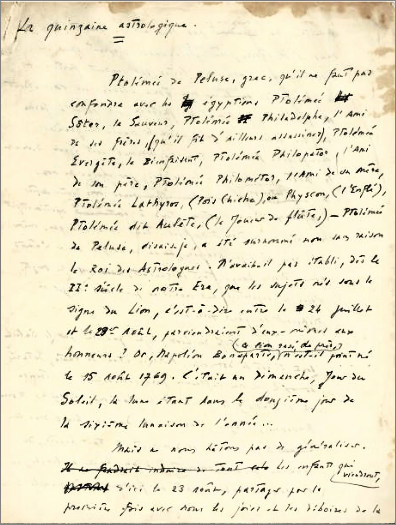 La quinzaine astrologique.
Ptolémée de Peluse, grec, qu'il ne faut pas
confondre avec les égyptiens Ptolémée
Soter, le Sauveur, Ptolémée Philadelphe, l'Ami
de ses frères, (qu'il fit d'ailleurs assassiner), Ptolémée
Evergète, le Bienfaisant, Ptolémée Philopator, l'Ami
de son père, Ptolémée Philometor, l'Ami de sa mère,
Ptolémée Lathyros, (Pois Chiche), ou Physcon, (l'Enflé),
Ptolémée dit Aulète, (le Joueur de flûte,) — Ptolémée
de Peluse, disais-je, a été surnommé non sans raison
le Roi des Astrologues. N'avait-il pas établi, dès le
IIe siècle de notre Ere, que les sujets nés sous le
signe du Lion, c'est-à-dire entre le 24 juillet
et le 23 Août, parviendraient d'eux-mêmes aux
honneurs? Or, Napoléon Bonaparte, n'était point né
le 15 Août 1769. C'était un Dimanche, Jour du
Soleil, la lune étant dans le douzième jour de
la sixième lunaison de l'année...
Mais ne nous hâtons pas de généraliser.
de tout les enfants qui viendront,
d'ici le 23 août, partager pour la
première fois avec nous les joies et les déboires de la